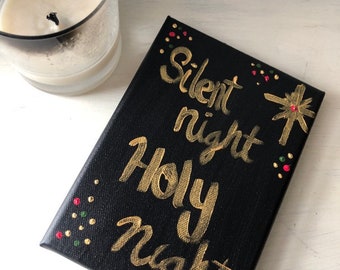 Silent
night
Holy
Night